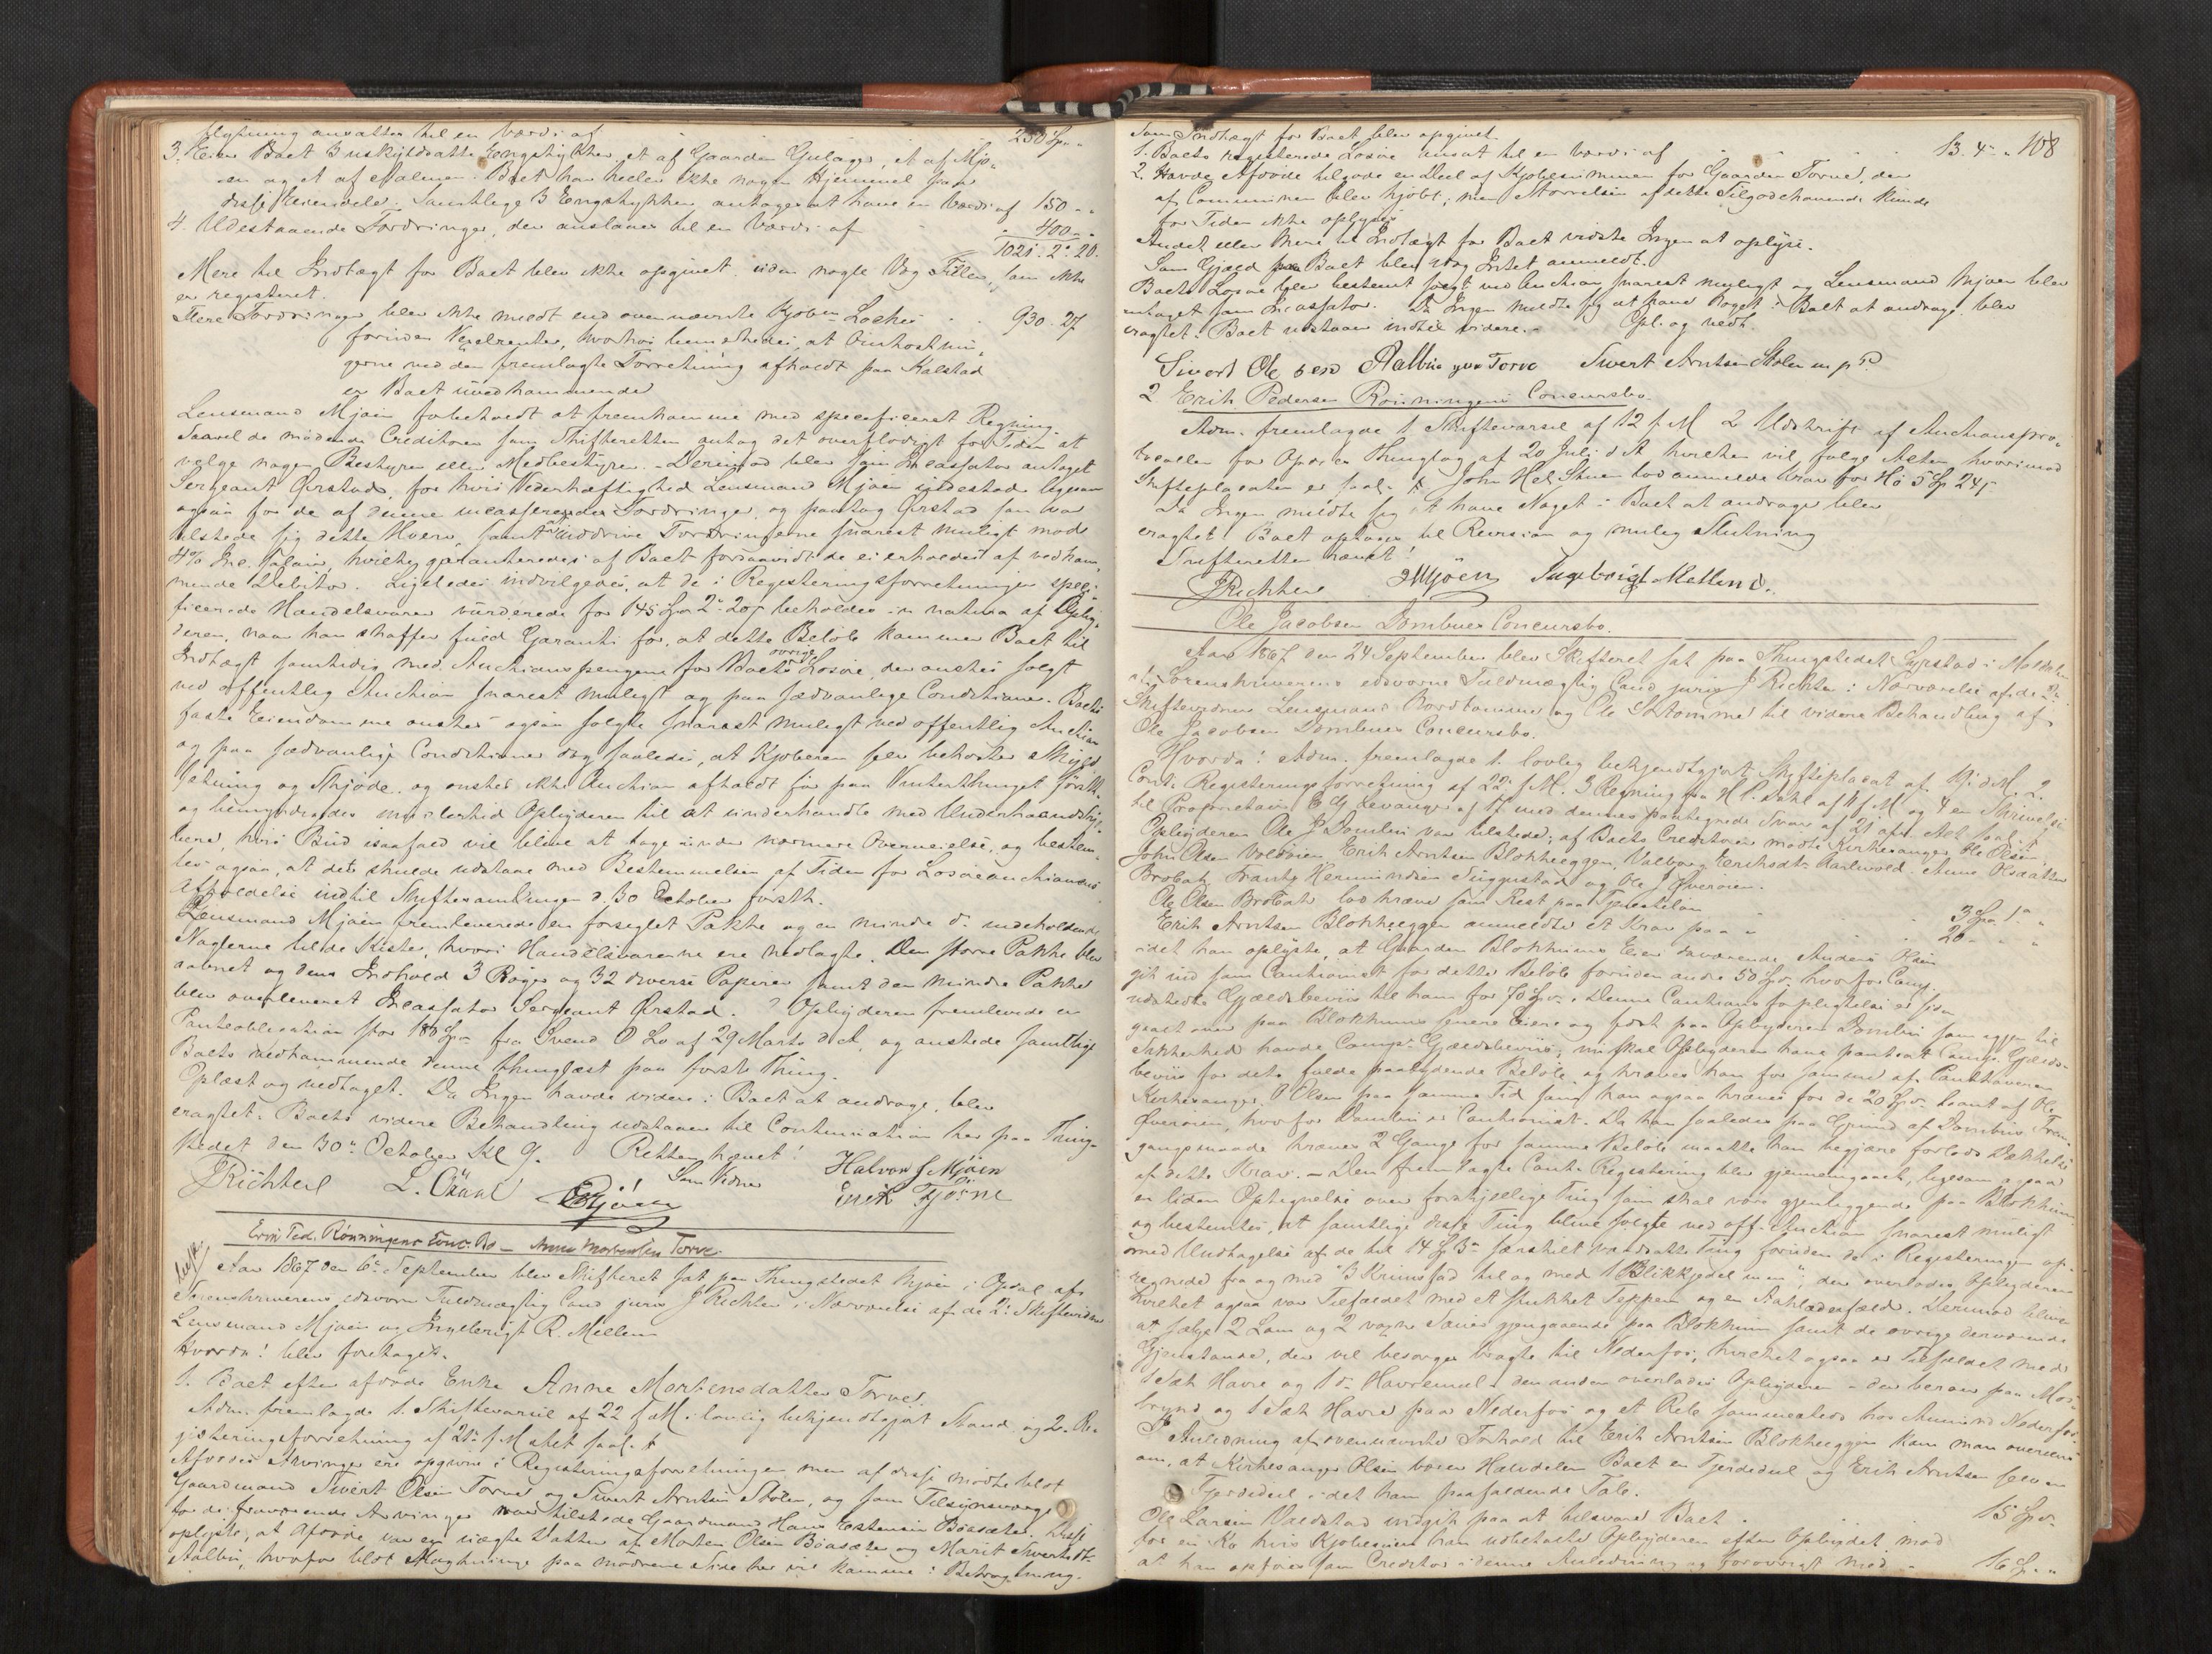 flytning ansattes til en Værdi af 250 Sp. "
3. Eier Boet 3 uskyldsatte Engstykker, et af Gaarden Gulager, et af Mjo-
en og et af Boet har heller ikke nogen Hjemmel paa
disse Eiendele. Samtlige 3 Engstykker antoges at have en Værdi af 150 " "
4. Udestaaende Fordringer, der anslaaes til en Værdi af 400 " "
1021. 2. 20.
Mere til Indtægt for Boet blev ikke opgivet, uden nogle Væg Tiller, som ikke
er registeret.
Flere Fordringer blev ikke meldt end ovennævnte Kjøbm. 930. 27
foruden Vexelrenter, hvorhos bemærkedes, at Omkostnin-
gerne ved den fremlagte Forretning afholdt paa Kalstad
er Boet uvedkommende
Lensmand Mjøen forbeholdt at fremkomme med specificeret Regning.
Saavel de mødende Creditorer som Skifteretten antog det overflødigt for Tiden at
vælge nogen Bestyrer eller Medbestyrer. - Derimod blev som Incassator antaget
Sergeant Ørstad, for hvis Vederhæftighed Lensmand Mjøen indestod ligesom
ogsaa for de af denne incasserende Fordringer, og paatog Ørstad som var
tilstede sig dette Hverv, samt at inddrive Fordringerne snarest muligt mod
4% Inc. Salair, hvilket garanteredes af Boet forsaavidt de ei erholdes af vedkom-
mende Debitor. Ligeledes indvilgedes, at de i Registeringsforretningen speci-
ficerede Handelsvarer vurderede for 145 Spd 2 " 20 s beholdes in natura af Opby-
deren, naar han skaffer fuld Garanti for, at dette Beløb kommer Boet til
Indtægt samtidig med Auctionspengene for Boets øvrige Løsøre, der ønskes solgt
ved offentlig Auction snarest muligt og paa sædvanlige Conditioner. Boets
faste Eiendomme ønskes ogsaa solgte snarest muligt ved offentlig Auction
og paa sædvanlige Conditioner dog saaledes, at Kjøberen selv bekoster Skyld-
sætning og Skjøde, og ønskes ikke Auction afholdt før paa Vinterthinget førstk.
og bemyndigedes imidlertid Opbyderen til at underhandle med Underhaandskjø-
bere, hvis Bud isaafald vil blive at tage under nærmere Overveielse, og bestem-
tes ogsaa, at det skulde udstaae med Bestemmelsen af Tiden for Løsøreauctionens
Afholdelse indtil Skiftesamlingen d. 30 October førstk.
Lensmand Mjøen fremleverede en forseglet Pakke og en mindre do indeholdende
Nøglerne til de Kister, hvori Handelsvarerne ere nedlagte. Den større Pakke blev
aabnet og dens Indhold 3 Bøger og 32 diverse Papirer samt den mindre Pakke
blev overleveret Incassator Sergeant Ørstad. Opbyderen fremleverede en
Panteobligation stor 180 Sp. fra Svend O Lo af 29 Marts d. A. og ønskede samtlige
Boets vedkommende denne thinglæst paa første Thing.
Oplæst og vedtaget. Da Ingen havde videre i Boet at andrage, blev
eragtet. Boets videre Behandling udstaaer til Continuation her paa Thing-
stedet den 30te October Kl 9. Retten hævet!
JRichter L. EMjøen Som Vidner Halvor J Mjøen
Erik Fjøsne
Erik Ped. Rønningens Conc. Bo - Anne Mortensdtr Torve.
Aar 1867 den 6te September blev Skifteret sat paa Thingstedet Mjøen i Opdal af
Sorenskriverens edsvorne Fuldmægtig Cand. juris J Richter i Nærværelse af de 2de Skiftevidner
Lensmand Mjøen og Ingebrigt R. Mellem
Hvorda! blev foretaget.
1. Boet efter afdøde Enke Anne Mortensdatter Torve.
Adm. fremlagde 1. Skiftevarsel af 22 f. M. i lovlig bekjendtgjort Stand og 2. Re-
gisteringsforretning af 21de f. M. Actet saal. t
Afdødes Arvinger ere opgivne i Registeringsforretningen, men af disse mødte blot
Gaardmand Sivert Olsen Torve og Sivert Arntsen Stølen, og som Tilsynsværge
for de fraværende Arvinger var tilstede Gaardmand Hans Estensen Bøasæter. Disse
oplyste, at Afdøde var en uægte Datter af Morten Olsen Bøasæter og Marit Sivertsdtr.
Aalbu, hvorfor blot Slægtninge paa mødrene Side her vil komme i Betragtning.
Som Indtægt for Boet blev opgivet.
108
1. Boets registerede Løsøre ansat til en Værdi af 13. 4 " "
2. Havde Afdøde tilgode en Deel af Kjøbesummen for Gaarden Torve, der
af Communen blev kjøbt, men Størrelsen af dette Tilgodehavende kunde
for Tiden ikke oplyses
Andet eller Mere til Indtægt for Boet vidste Ingen at oplyse.
Som Gjæld paa Boet blev idag Intet anmeldt.
Boets Løsøre blev bestemt solgt ved Auction snarest muligt og Lensmand Mjøen blev
antaget som Incassator. Da Ingen meldte sig at have Noget i Boet at andrage blev
eragtet: Boet udstaaer indtil videre. - Opl. og vedt.
Sivert Ole sen Aalbu Torve Sivert Arntsen Stølen m p P
2 Erik Pedersen Rønningens Concursbo.
Adm. fremlagde 1. Skiftevarsel af 12 f. M. 2 Udskrift af Auctionspro-
tocollen for Opdal Thinglag af 20 Juli d A hvilken vil følge Acten, hvorimod
Skifteplacaten er saal. t. John Hel. Stuen lod anmelde Krav for Hø 5 Sp 24 s
Da Ingen meldte sig at have Noget i Boet at andrage blev
eragtet! Boet optages til Revision og mulig Slutning
Skifteretten hævet!
JRichter EMjøen Ingebrigt Mellem.
Ole Jacobsen Dombues Concursbo.
Aar 1867 den 24 September blev Skifteret sat paa Thingstedet Syrstad i Meldalen
af Sorenskriverens edsvorne Fuldmægtig Cand. juris J Richter i Nærværelse af de 2de
Skiftevidner Lensmand og Ole til videre Behandling af
Ole Jacobsen Dombues Concursbo.
Hvorda! Adm. fremlagde 1. lovlig bekjendtgjort Skifteplacat af d. M. 2.
Cont. Registeringsforretning af 22. f. M. 3 Regning fra af f M. og 4 en Skrivelse
til Proprietair Levanger af med dennes paategnede Svar af 21 Act saal. t
Opbyderen Ole J Dombu var tilstede; af Boets Creditorer mødte Kirkesanger Ole Olsen,
John Olsen Erik Arntsen Blokhseggen, Valborg Eriksdtr. Anne Olsdatter
Brobak, og Ole J. Øverøien.
Ole Olsen Brobak lod kræve som Rest paa 3 Spd. 1 " "
Erik Arntsen Blokhseggen anmeldte et Krav paa 20 " " "
idet han oplyste, at Gaarden Blokhuus's Eier daværende Anders Olsen
gik ind som Cautionist for dette Beløb foruden andre 50 Spd. hvorfor Comp.
udstedte Gjældsbeviis til ham for 70 Spd. Denne Cautionsforpligtelse er siden
gaaet over paa Blokhuus senere Eiere og sidst paa Opbyderen Dombu som ogsaa til
Sikkerhed havde Comp. Gjældsbeviis, nu skal Opbyderen have pantsat Comp. Gjælds-
beviis for dets fulde paalydende Beløb og kræves han for samme af Panthaveren
Kirkesanger O Olsen paa samme Tid som han ogsaa kræves for de 20 Spd. laant af Ole
Øverøien, hvorfor Dombu er Cautionist. Da han saaledes paa Grund af Dombus Frem-
gangsmaade kræves 2 Gange for samme Beløb maatte han begjære forlods Dækkelse
af dette Krav. - Den fremlagte Conti. Registering blev gjennemgaaet, ligesom ogsaa
en liden Optegnelse over forskjellige Ting som skal være gjenliggende paa Blokhuus
og bestemtes, at samtlige disse Ting blive solgte ved off. Auction snarest muligt
med Undtagelse af de til 14 Sp 3 " særskilt værdsatte Ting foruden de i Registeringen op-
regnede fra og med "3 til og med 1 Blikkjedel m m", der overlodes Opbyderen
hvilket ogsaa var Tilfældet med et Teppe og en Derimod blive
at sælge 2 Lam og 2 voxne Sauer gjengaaende paa Blokhuus samt de øvrige derværende
Gjenstande, der vil besørges bragte til Nederfos, hvilket ogsaa er Tilfældet med
1 Sæk Havre og 1 do Havremeel - den anden overlades Opbyderen - der beroer paa Mos-
brynd og 1 Sæk Havre paa Nederfos og et Reb sammesteds hos Amund Nederfos
I Anledning af ovennævnte Forhold til Erik Arntsen Blokhseggen kom man overeens
om, at Kirkesanger Olsen bærer Halvdelen Boet en Fjerdedeel og Erik Arntsen selv en
Fjerdedeel i det ham paafaldende Tab.
Ole Larsen indgik paa at tilsvare Boet 15 Spd.
for en Ko hvis Kjøbesum han udbetalte Opbyderen efter Opbudet mod
at han opføres som Creditor i denne Anledning og Forøvrigt med 16 Sp " "